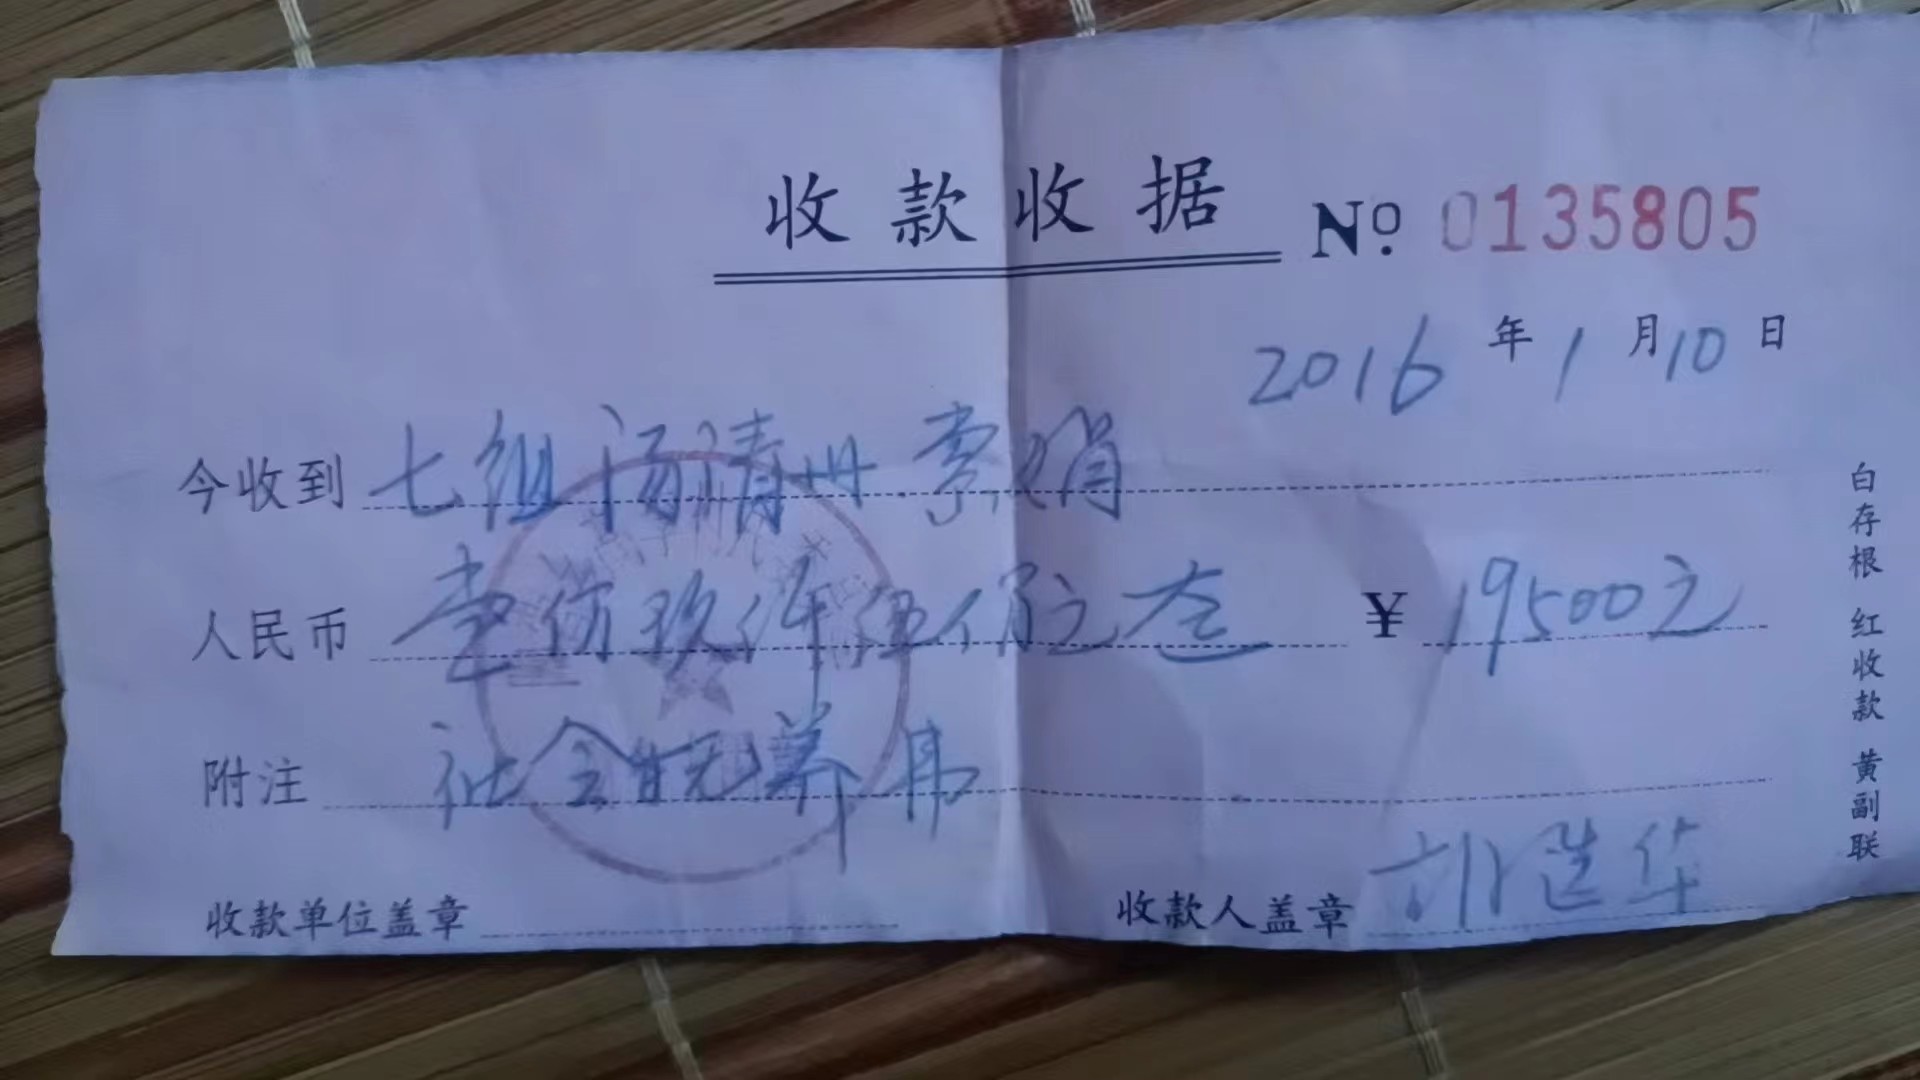 收款收据 № 0135805
2016年1月10日
今收到 七组 汤清丹 索娟
人民币 壹万玖仟伍佰元 ¥ 19500元
附注 社会抚养费
收款单位盖章 收款人盖章 胡选华
白存根 红收款 黄副联